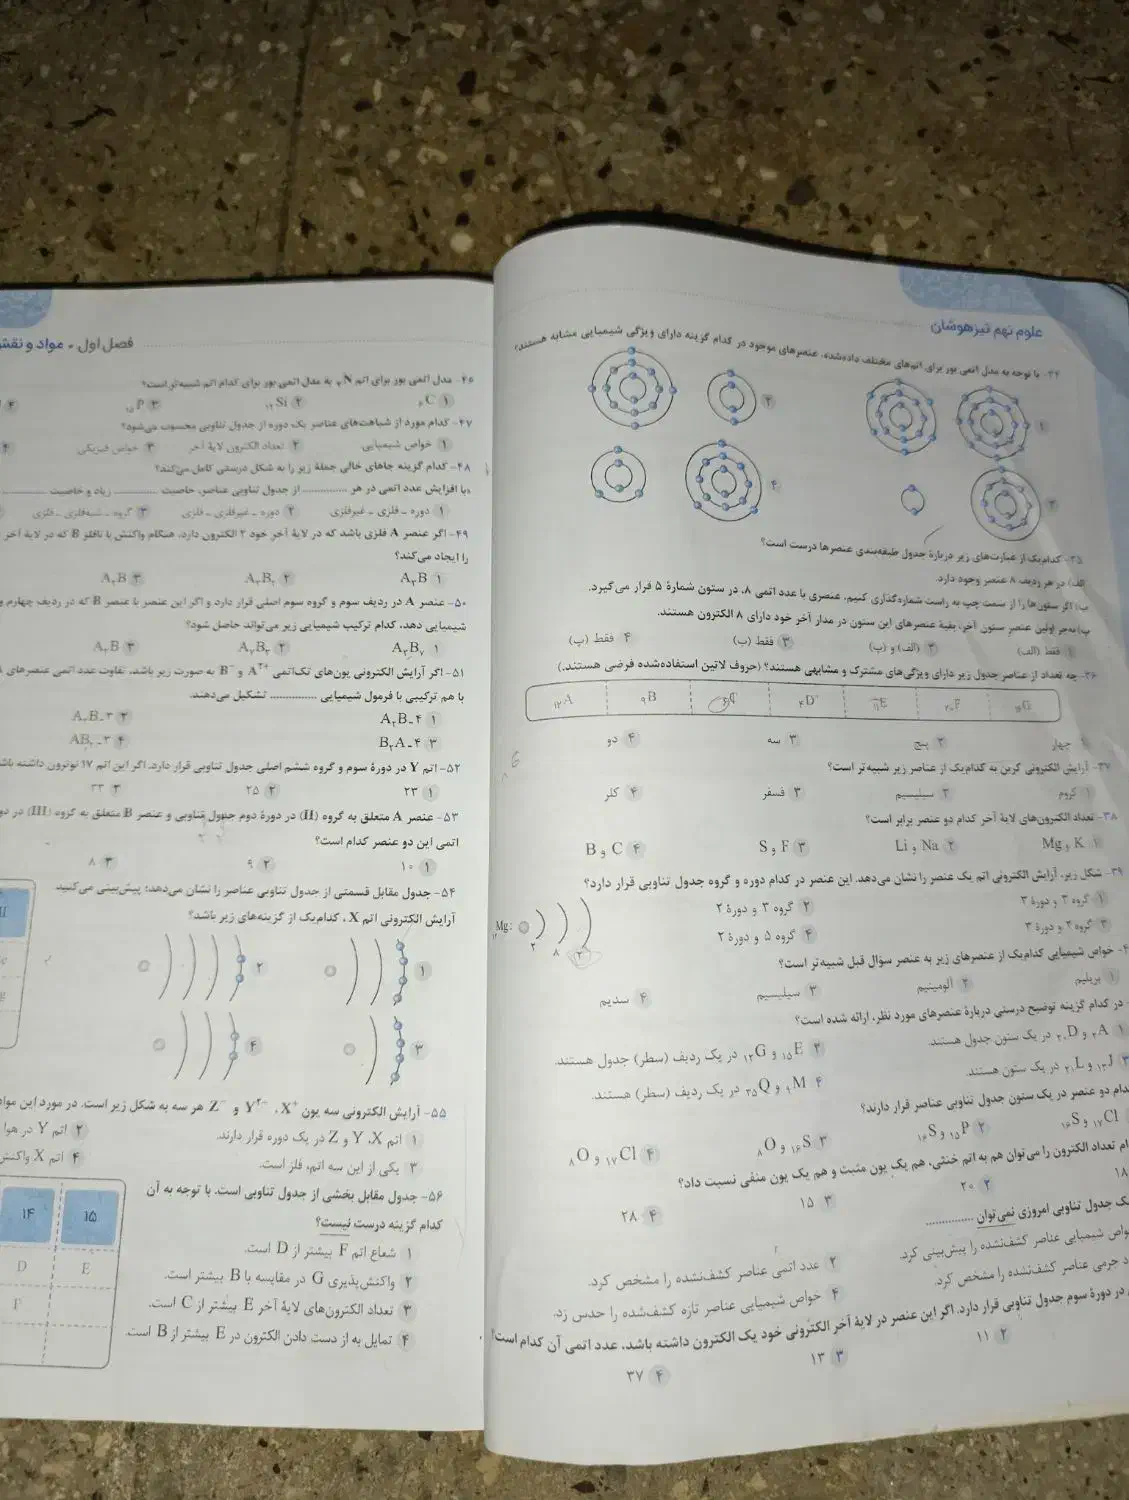 علوم نهم تیزهوشان
۳۴- با توجه به مدل اتمی بور برای اتم‌های مختلف داده‌شده، عنصرهای موجود در کدام گزینه دارای ویژگی شیمیایی مشابه هستند؟
۱
۲
۳
۴
۳۵- کدام‌یک از عبارت‌های زیر دربارهٔ جدول طبقه‌بندی عنصرها درست است؟
الف) در هر ردیف ۸ عنصر وجود دارد.
ب) اگر ستون‌ها را از سمت چپ به راست شماره‌گذاری کنیم، عنصری با عدد اتمی ۸، در ستون شمارهٔ ۵ قرار می‌گیرد.
پ) به‌جز اولین عنصر ستون آخر، بقیهٔ عنصرهای این ستون در مدار آخر خود دارای ۸ الکترون هستند.
۱ فقط (الف) ۲ (الف) و (ب) ۳ فقط (ب) ۴ فقط (پ)
۳۶- چه تعداد از عناصر جدول زیر دارای ویژگی‌های مشترک و مشابهی هستند؟ (حروف لاتین استفاده‌شده فرضی هستند.)
₁₂A ₉B C ₄D ₁₁E ₂₀F G
۱ چهار ۲ پنج ۳ سه ۴ دو
۳۷- آرایش الکترونی کربن به کدام‌یک از عناصر زیر شبیه‌تر است؟
۱ کروم ۲ سیلیسیم ۳ فسفر ۴ کلر
۳۸- تعداد الکترون‌های لایهٔ آخر کدام دو عنصر برابر است؟
۱ K و Mg ۲ Na و Li ۳ F و S ۴ C و B
۳۹- شکل زیر، آرایش الکترونی اتم یک عنصر را نشان می‌دهد. این عنصر در کدام دوره و گروه جدول تناوبی قرار دارد؟
۱ گروه ۲ و دورهٔ ۳ ۲ گروه ۳ و دورهٔ ۲
۳ گروه ۳ و دورهٔ ۳ ۴ گروه ۵ و دورهٔ ۲
₁₂Mg: ۲ ۸ ۲
خواص شیمیایی کدام‌یک از عنصرهای زیر به عنصر سؤال قبل شبیه‌تر است؟
۱ بریلیم ۲ آلومینیم ۳ سیلیسیم ۴ سدیم
در کدام گزینه توضیح درستی دربارهٔ عنصرهای مورد نظر، ارائه شده است؟
۱ ₂A و ₂₀D در یک ستون جدول هستند. ۲ ₁₅E و ₁₂G در یک ردیف (سطر) جدول هستند.
۳ ₁₃J و ₂₁L در یک ستون هستند. ۴ ₉M و ₃₵Q در یک ردیف (سطر) هستند.
دام دو عنصر در یک ستون جدول تناوبی عناصر قرار دارند؟
₁₇Cl و ₁₆S ۲ ₁₅P و ₁₆S ۳ ₁₆S و ₈O ۴ ₁₇Cl و ₈O
ام تعداد الکترون را می‌توان هم به اتم خنثی، هم یک یون مثبت و هم یک یون منفی نسبت داد؟
۱۸ ۲ ۲۰ ۳ ۱۵ ۴ ۲۸
ک جدول تناوبی امروزی نمی‌توان ..............
واص شیمیایی عناصر کشف‌نشده را پیش‌بینی کرد. ۲ عدد اتمی عناصر کشف‌نشده را مشخص کرد.
د جرمی عناصر کشف‌نشده را مشخص کرد. ۴ خواص شیمیایی عناصر تازه کشف‌شده را حدس زد.
در دورهٔ سوم جدول تناوبی قرار دارد. اگر این عنصر در لایهٔ آخر الکترونی خود یک الکترون داشته باشد، عدد اتمی آن کدام است؟
۲ ۱۱ ۳ ۱۳ ۴ ۳۷
فصل اول • مواد و نقش
مدل اتمی بور برای اتم ₇N به مدل اتمی بور برای کدام اتم شبیه‌تر است؟
۱ ₆C ۲ ₁₄Si ۳ ₁₅P ۴
۴۷- کدام مورد از شباهت‌های عناصر یک دوره از جدول تناوبی محسوب می‌شود؟
۱ خواص شیمیایی ۲ تعداد الکترون لایهٔ آخر ۳ خواص فیزیکی ۴
۴۸- کدام گزینه جاهای خالی جملهٔ زیر را به شکل درستی کامل می‌کند؟
«با افزایش عدد اتمی در هر .............. از جدول تناوبی عناصر، خاصیت .............. زیاد و خاصیت ..............
۱ دوره - فلزی - غیرفلزی ۲ دوره - غیرفلزی - فلزی ۳ گروه - شبه‌فلزی - فلزی
۴۹- اگر عنصر A فلزی باشد که در لایهٔ آخر خود ۲ الکترون دارد، هنگام واکنش با نافلز B که در لایهٔ آخر
را ایجاد می‌کند؟
۱ A₂B ۲ A₂B₂ ۳ A₃B
۵۰- عنصر A در ردیف سوم و گروه سوم اصلی قرار دارد و اگر این عنصر با عنصر B که در ردیف چهارم و
شیمیایی دهد، کدام ترکیب شیمیایی زیر می‌تواند حاصل شود؟
۵۱- اگر آرایش الکترونی یون‌های تک‌اتمی A²⁺ و B⁻ به صورت زیر باشد، تفاوت عدد اتمی عنصرهای
با هم ترکیبی با فرمول شیمیایی .............. تشکیل می‌دهند.
۱ A₂B-۴ ۲ A₂B-۳
۳ B₂A-۴ ۴ AB₂-۳
۵۲- اتم Y در دورهٔ سوم و گروه ششم اصلی جدول تناوبی قرار دارد. اگر این اتم ۱۷ نوترون داشته باش
۱ ۲۳ ۲ ۲۵ ۳ ۳۳
۵۳- عنصر A متعلق به گروه (II) در دورهٔ دوم جدول تناوبی و عنصر B متعلق به گروه (III) در دو
اتمی این دو عنصر کدام است؟
۱ ۱۰ ۲ ۹ ۳ ۸
۵۴- جدول مقابل قسمتی از جدول تناوبی عناصر را نشان می‌دهد؛ پیش‌بینی می‌کنید
آرایش الکترونی اتم X، کدام‌یک از گزینه‌های زیر باشد؟
۱
۲
۳
۴
۵۵- آرایش الکترونی سه یون X⁺، Y²⁻ و Z⁻ هر سه به شکل زیر است. در مورد این مواد
۱ اتم X، Y و Z در یک دوره قرار دارند. ۲ اتم Y در هوا
۳ یکی از این سه اتم، فلز است. ۴ اتم X واکنش
۵۶- جدول مقابل بخشی از جدول تناوبی است. با توجه به آن
کدام گزینه درست نیست؟
۱ شعاع اتم F بیشتر از D است.
۲ واکنش‌پذیری G در مقایسه با B بیشتر است.
۳ تعداد الکترون‌های لایهٔ آخر E بیشتر از C است.
۴ تمایل به از دست دادن الکترون در E بیشتر از B است.
۱۴ ۱۵
D E
F